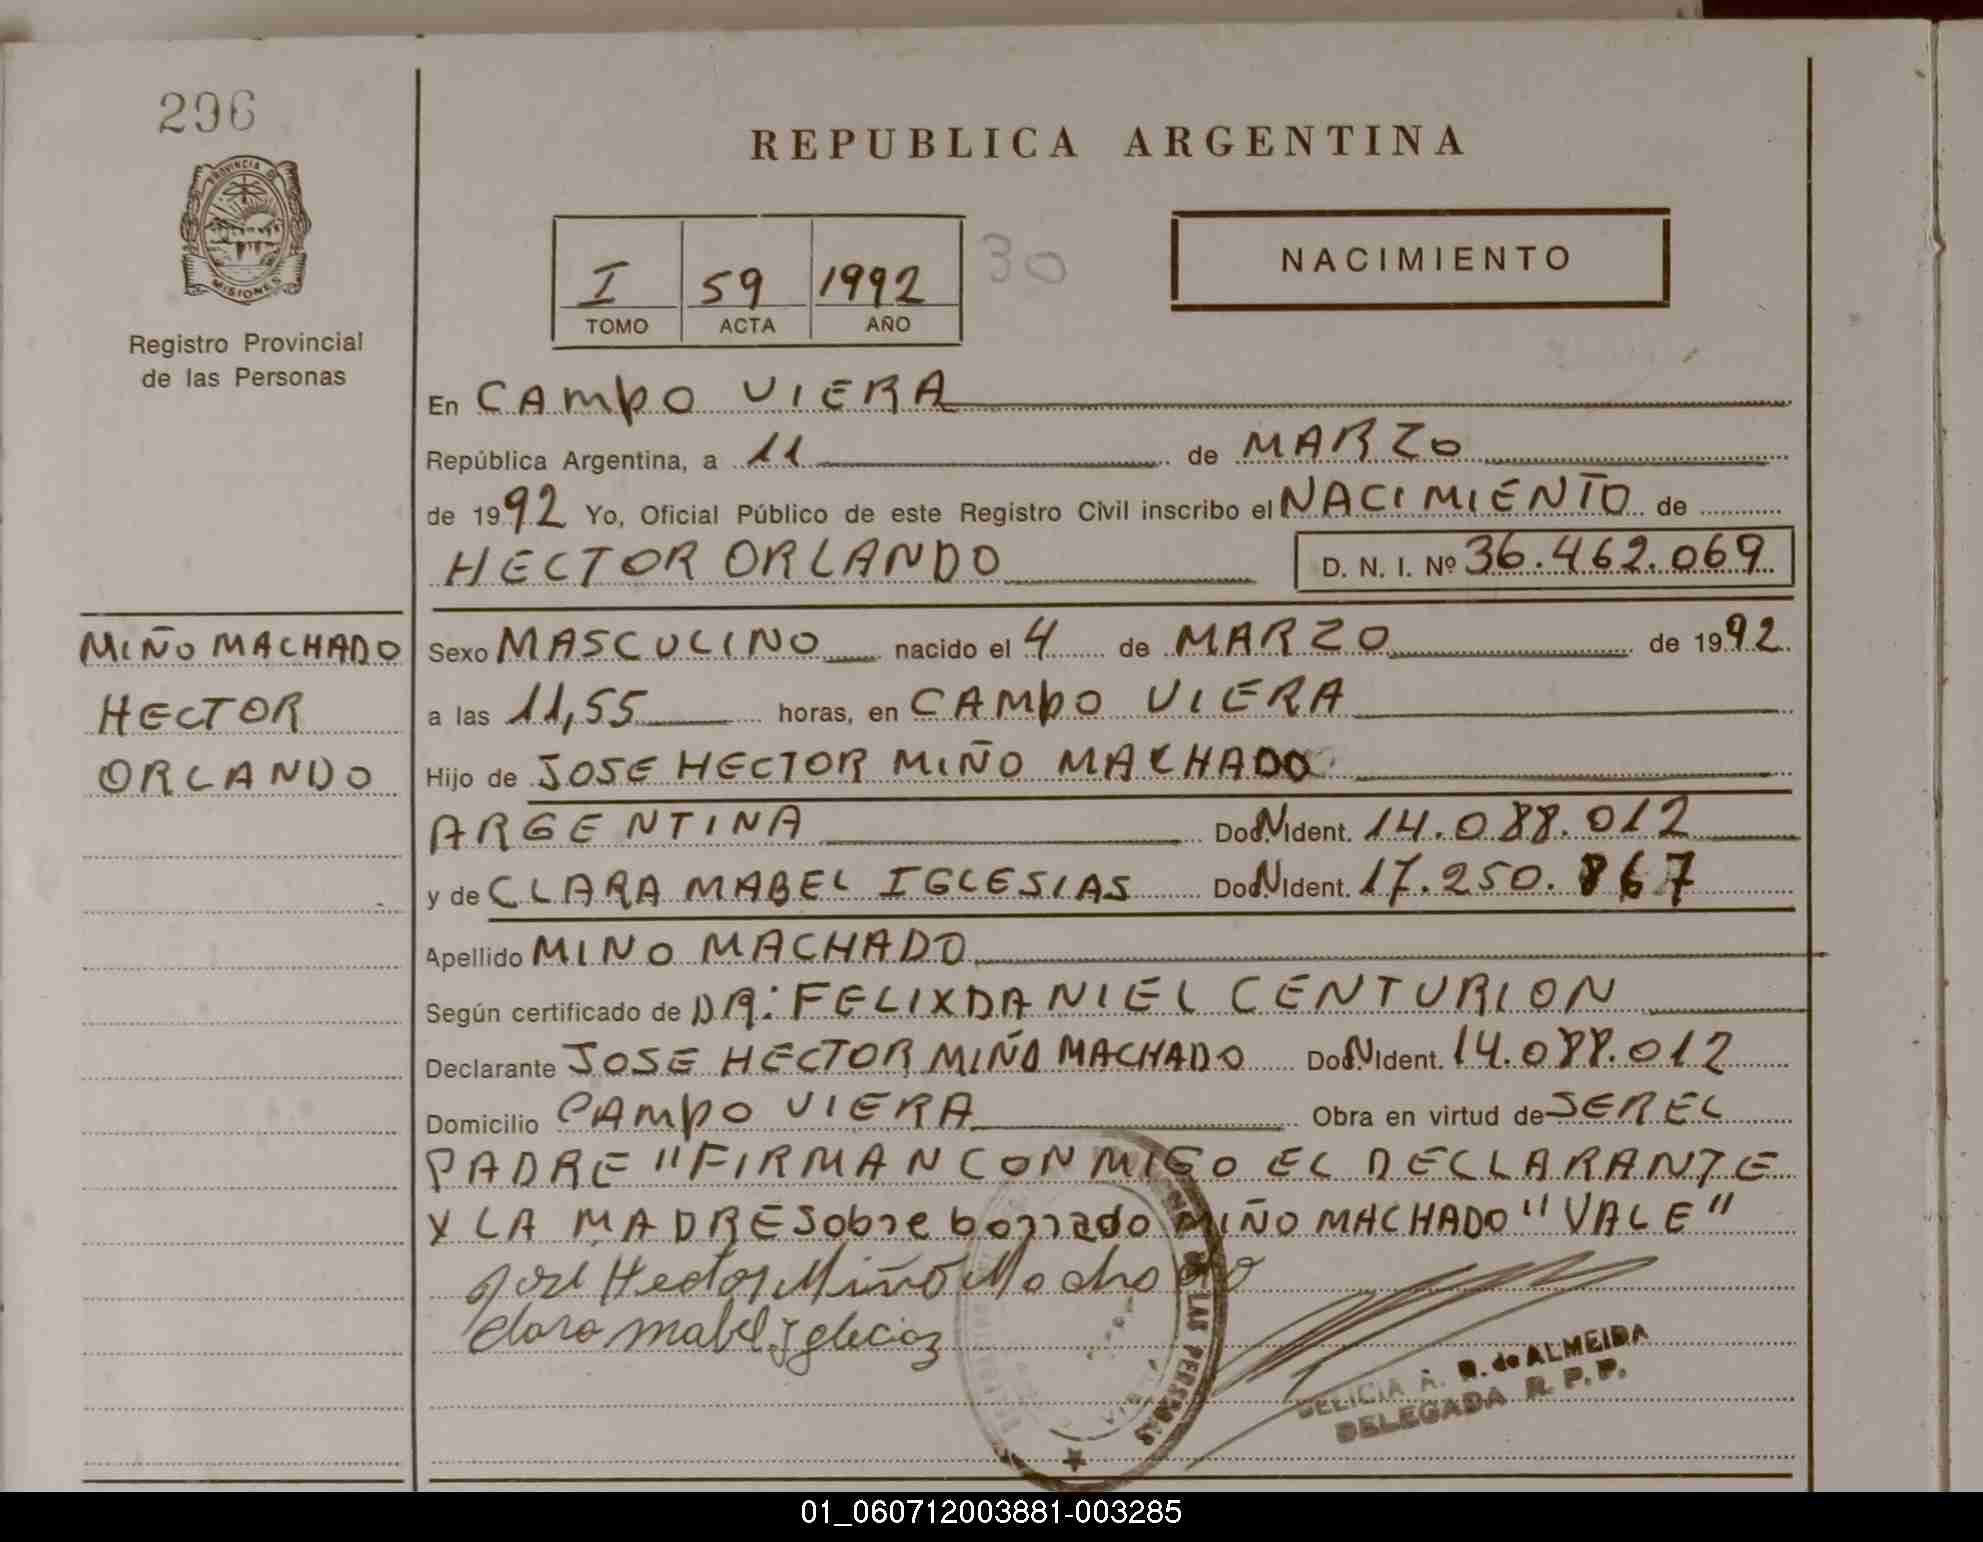 296
PROVINCIA DE
MISIONES
Registro Provincial
de las Personas
REPUBLICA ARGENTINA
I 59 1992 30
TOMO ACTA AÑO
NACIMIENTO
En CAMPO VIERA
República Argentina, a 11 de MARZO
de 1992 Yo, Oficial Público de este Registro Civil inscribo el NACIMIENTO de
HECTOR ORLANDO D. N. I. Nº 36.462.069
MIÑO MACHADO
HECTOR
ORLANDO
Sexo MASCULINO nacido el 4 de MARZO de 1992.
a las 11,55 horas, en CAMPO VIERA
Hijo de JOSE HECTOR MIÑO MACHADO
ARGENTINA Doc. N Ident. 14.088.012
y de CLARA MABEL IGLESIAS Doc. N Ident. 17.250.867
Apellido MINO MACHADO
Según certificado de DR: FELIX DANIEL CENTURION
Declarante JOSE HECTOR MIÑO MACHADO Doc. N Ident. 14.088.012
Domicilio CAMPO VIERA Obra en virtud de SER EL
PADRE "FIRMAN CONMIGO EL DECLARANTE
Y LA MADRE Sobre borrado MIÑO MACHADO "VALE"
Jose Hector Miño Machado
Clara Mabel Iglecias
DE LAS PERSONAS
DELICIA A. R. de ALMEIDA
DELEGADA R. P. P.
01_060712003881-003285